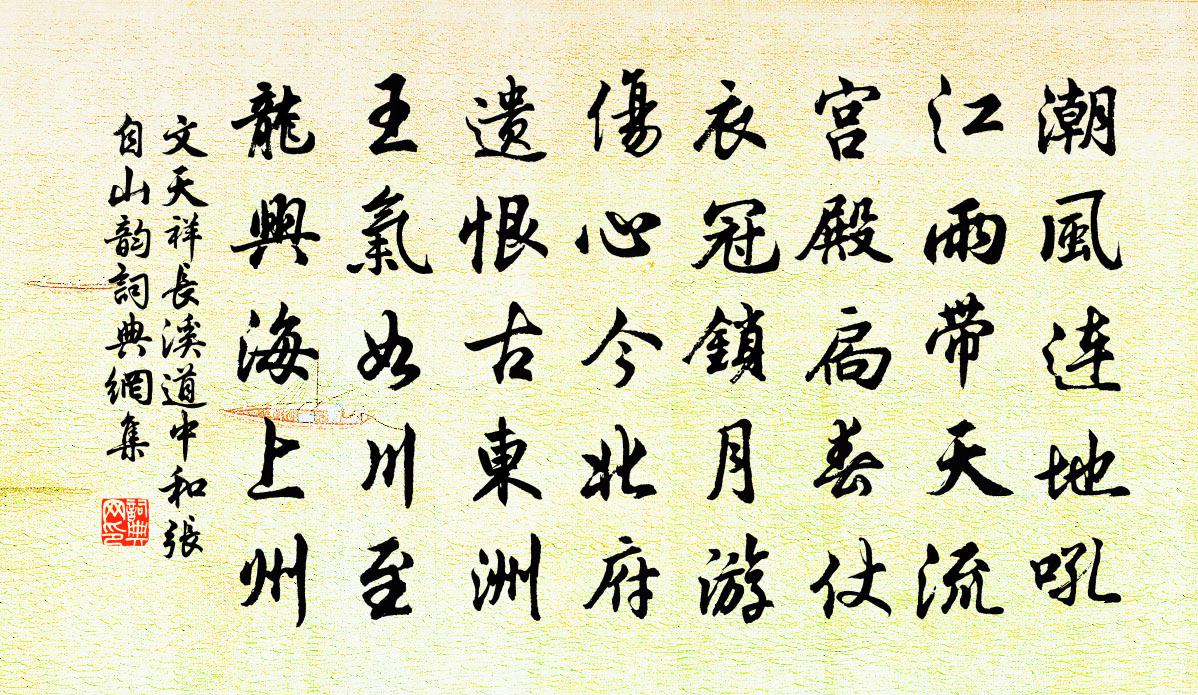 潮風連地吼
江雨帶天流
宮殿扃春仗
衣冠鎖月游
傷心今北府
遺恨古東洲
王氣如川至
龍興海上州
文天祥長溪道中和張
自山韵詞典網集
詞典网印